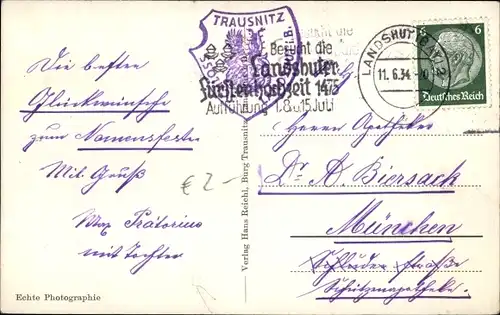 TRAUSNITZ
Besucht die
Landshuter
Fürstenhochzeit 1475
Aufführung 1. 8. u. 15. Juli
LANDSHUT
11. 6. 34
6
Deutsches Reich
Die besten
Glückwünsche
zum Namensfeste
Mit Gruß
Max Prätorius
mit Tochter
€ 2-
Echte Photographie
Verlag Hans Reichl, Burg Trausnitz
Herrn Apotheker
Dr. A. Biersack
München
Schluder straße
Schützenapotheke.